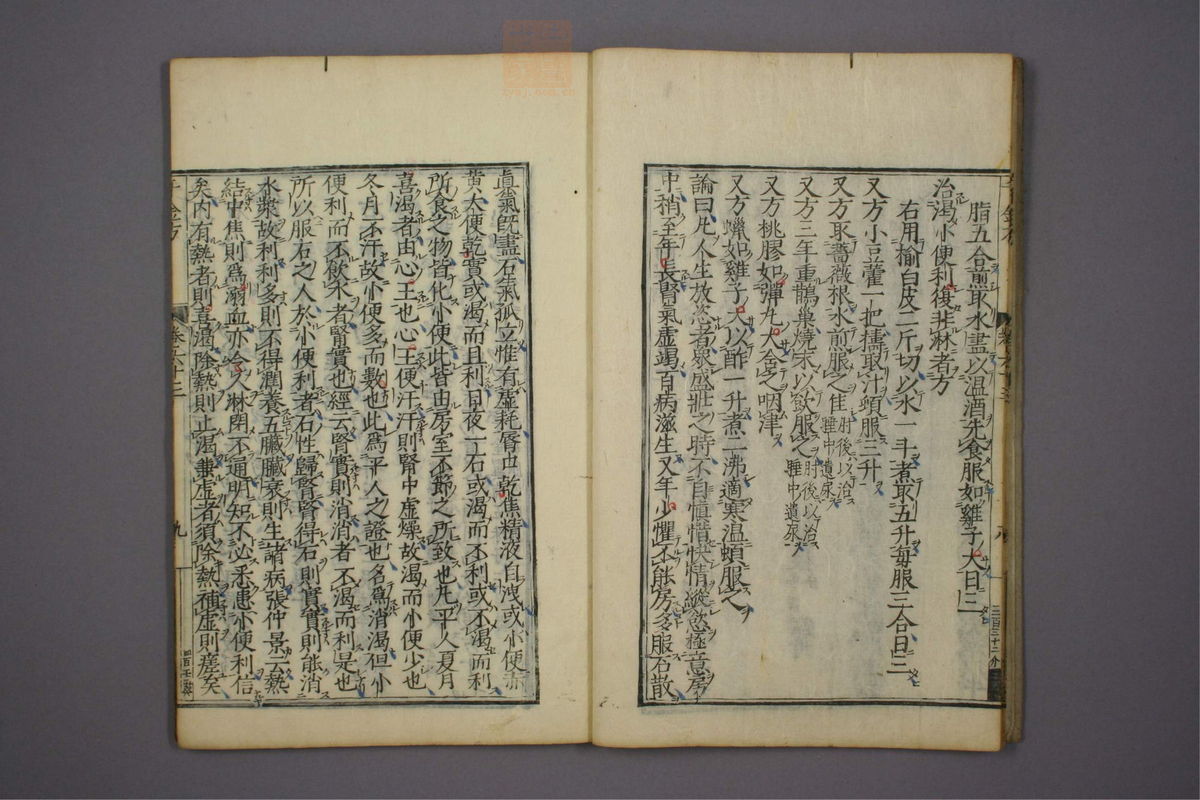 脂五合煎取水盡以溫酒先食服如雞子大日三
治渴小便利復非淋者方
右用榆白皮二斤切以水一斗煮取五升每服三合日三
又方小豆藿一把擣取汁頓服三升
又方取薔薇根水煎服之佳肘後以治睡中遺尿
又方三年重鵲巢燒末以飲服之肘後以治睡中遺尿
又方桃膠如彈丸大含之咽津
又方蠟如雞子大以酢一升煮二沸適寒溫頓服之
論曰凡人生放恣者衆盛壯之時不自慎惜快情縱慾極意房
中稍至年長腎氣虛竭百病滋生又年少懼不能房多服石散
眞氣既盡石氣孤立惟有虛耗唇口乾焦精液自洩或小便赤
黃大便乾實或渴而且利日夜一石或渴而不利或不渴而利
所食之物皆化小便此皆由房室不節之所致也凡平人夏月
喜渴者由心王也心王便汗汗則腎中虛燥故渴而小便少也
冬月不汗故小便多而數也此爲平人之證也名爲消渴但小
便利而不飲水者腎實也經云腎實則消消者不渴而利是也
所以服石之人於小便利者石性歸腎腎得石則實實則能消
水漿故利利多則不得潤養五臟臟衰則生諸病張仲景云熱
結中焦則爲溺血亦令人淋閉不通明知不必悉患小便利信
矣內有熱者則喜渴除熱則止渴兼虛者須除熱補虛則瘥矣
千金方
卷六十三
九